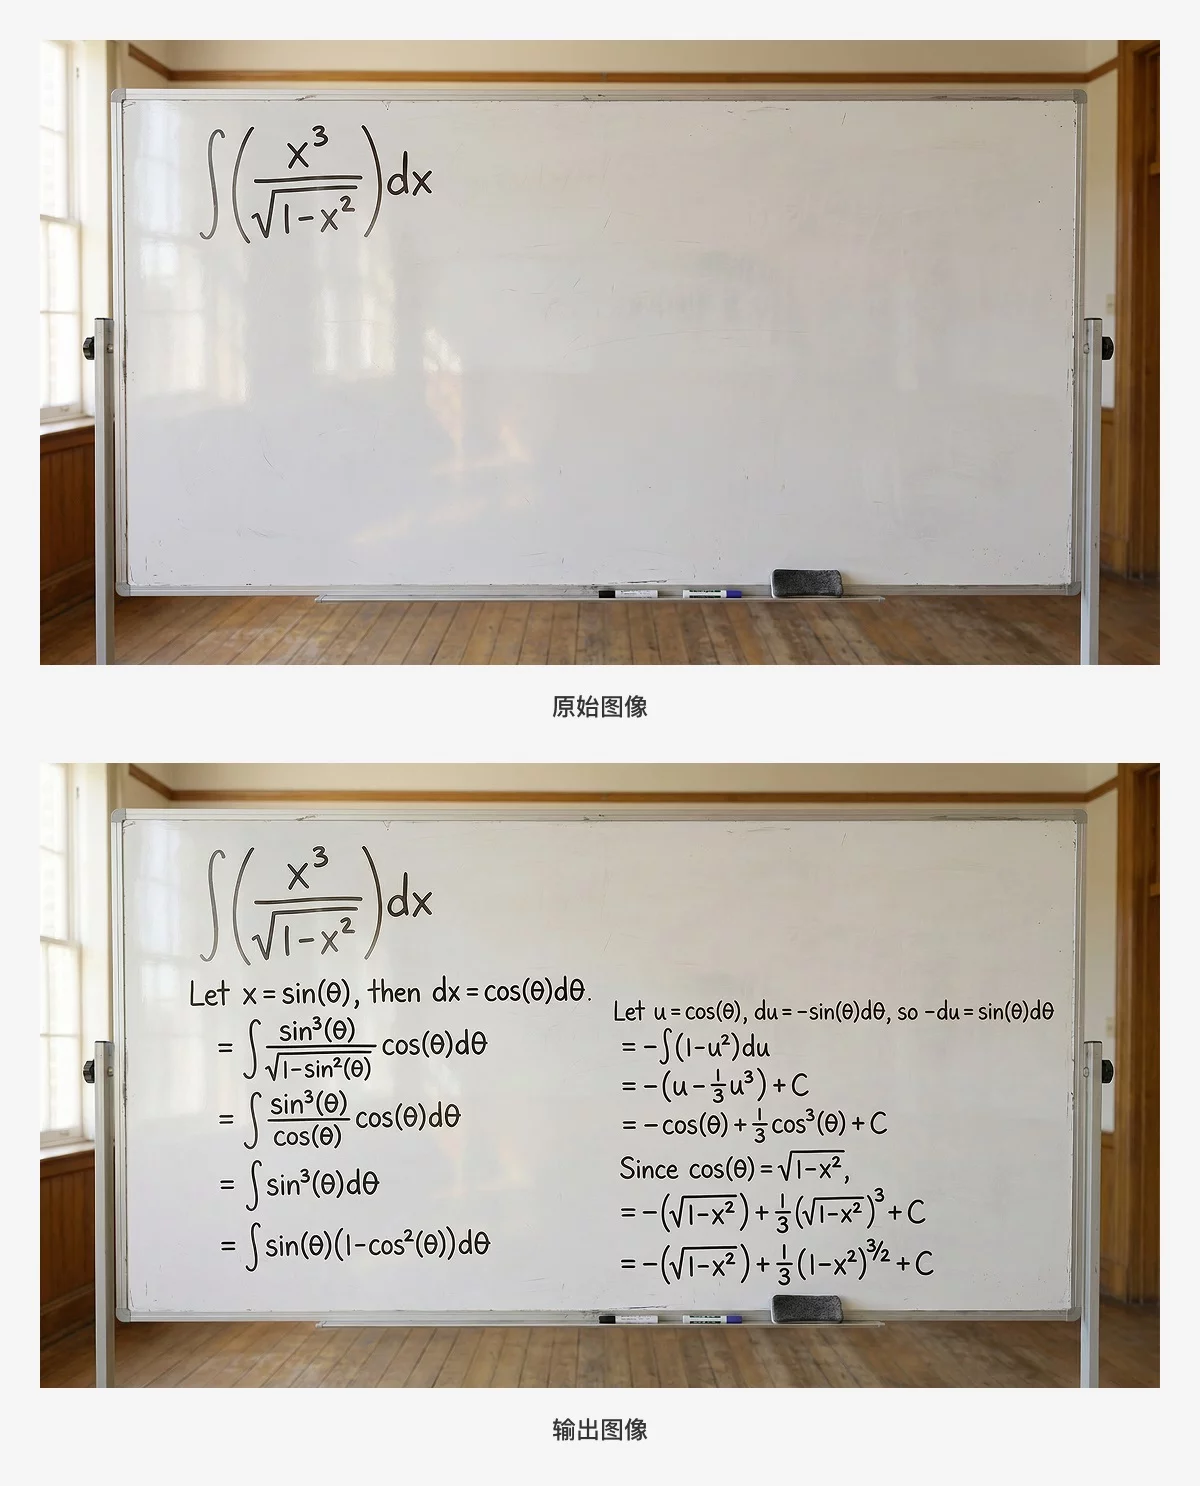 ∫(x³/√(1-x²))dx
原始图像
∫(x³/√(1-x²))dx
Let x = sin(θ), then dx = cos(θ)dθ.
= ∫ sin³(θ)/√(1-sin²(θ)) cos(θ)dθ
= ∫ sin³(θ)/cos(θ) cos(θ)dθ
= ∫ sin³(θ)dθ
= ∫ sin(θ)(1-cos²(θ))dθ
Let u = cos(θ), du = -sin(θ)dθ, so -du = sin(θ)dθ
= -∫(1-u²)du
= -(u - 1/3 u³) + C
= -cos(θ) + 1/3 cos³(θ) + C
Since cos(θ) = √(1-x²),
= -(√(1-x²)) + 1/3 (√(1-x²))³ + C
= -(√(1-x²)) + 1/3 (1-x²)^(3/2) + C
输出图像